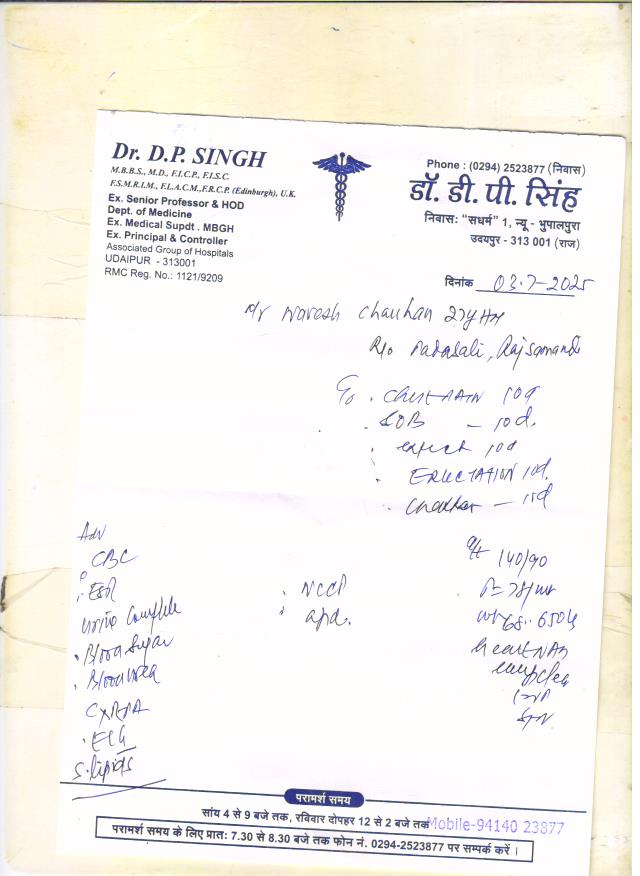 Dr. D.P. SINGH
M.B.B.S., M.D., F.I.C.P., F.I.S.C.
F.S.M.R.I.M., F.L.A.C.M.,F.R.C.P. (Edinburgh), U.K.
Ex. Senior Professor & HOD
Dept. of Medicine
Ex. Medical Supdt . MBGH
Ex. Principal & Controller
Associated Group of Hospitals
UDAIPUR - 313001
RMC Reg. No.: 1121/9209
Phone : (0294) 2523877 (निवास)
डॉ. डी. पी. सिंह
निवास: "सधर्म" 1, न्यू - भुपालपुरा
उदयपुर - 313 001 (राज)
दिनांक 03.7-2025
Mr Naresh Chauhan 27y
R/o Padasali, Rajsamand
CHEST PAIN 10d
SOB - 10d.
10d
ERUCTATION 10d.
- 10d
Adv
CBC
ESR
Urine Complete
Blood Sugar
Blood Urea
CXRPA
ECG
S. lipids
NCCP
apd.
140/90
P= 78/mt
wt 68.650 kg
Heart NAD
परामर्श समय
सांय 4 से 9 बजे तक, रविवार दोपहर 12 से 2 बजे तक Mobile-94140 23877
परामर्श समय के लिए प्रात: 7.30 से 8.30 बजे तक फोन नं. 0294-2523877 पर सम्पर्क करें ।